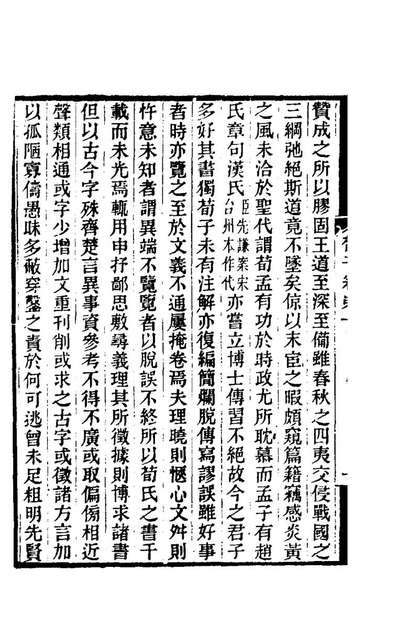 贊成之所以膠固王道至深至備雖春秋之四夷交侵戰國之
三綱弛絕斯道竟不墜矣倞以末宦之暇頗窺篇籍竊感炎黃
之風未洽於聖代謂荀孟有功於時政尤所耽慕而孟子有趙
氏章句漢氏臣先謙案宋台州本作代亦嘗立博士傳習不絕故今之君子
多好其書獨荀子未有注解亦復編簡爛脫傳寫謬誤雖好事
者時亦覽之至於文義不通屢掩卷焉夫理曉則愜心文舛則
忤意未知者謂異端不覽覽者以脫誤不終所以荀氏之書千
載而未光焉輒用申抒鄙思敷尋義理其所徵據則博求諸書
但以古今字殊齊楚言異事資參考不得不廣或取偏傍相近
聲類相通或字少增加文重刊削或求之古字或徵諸方言加
以孤陋寡儔愚昧多蔽穿鑿之責於何可逃曾未足粗明先賢
一